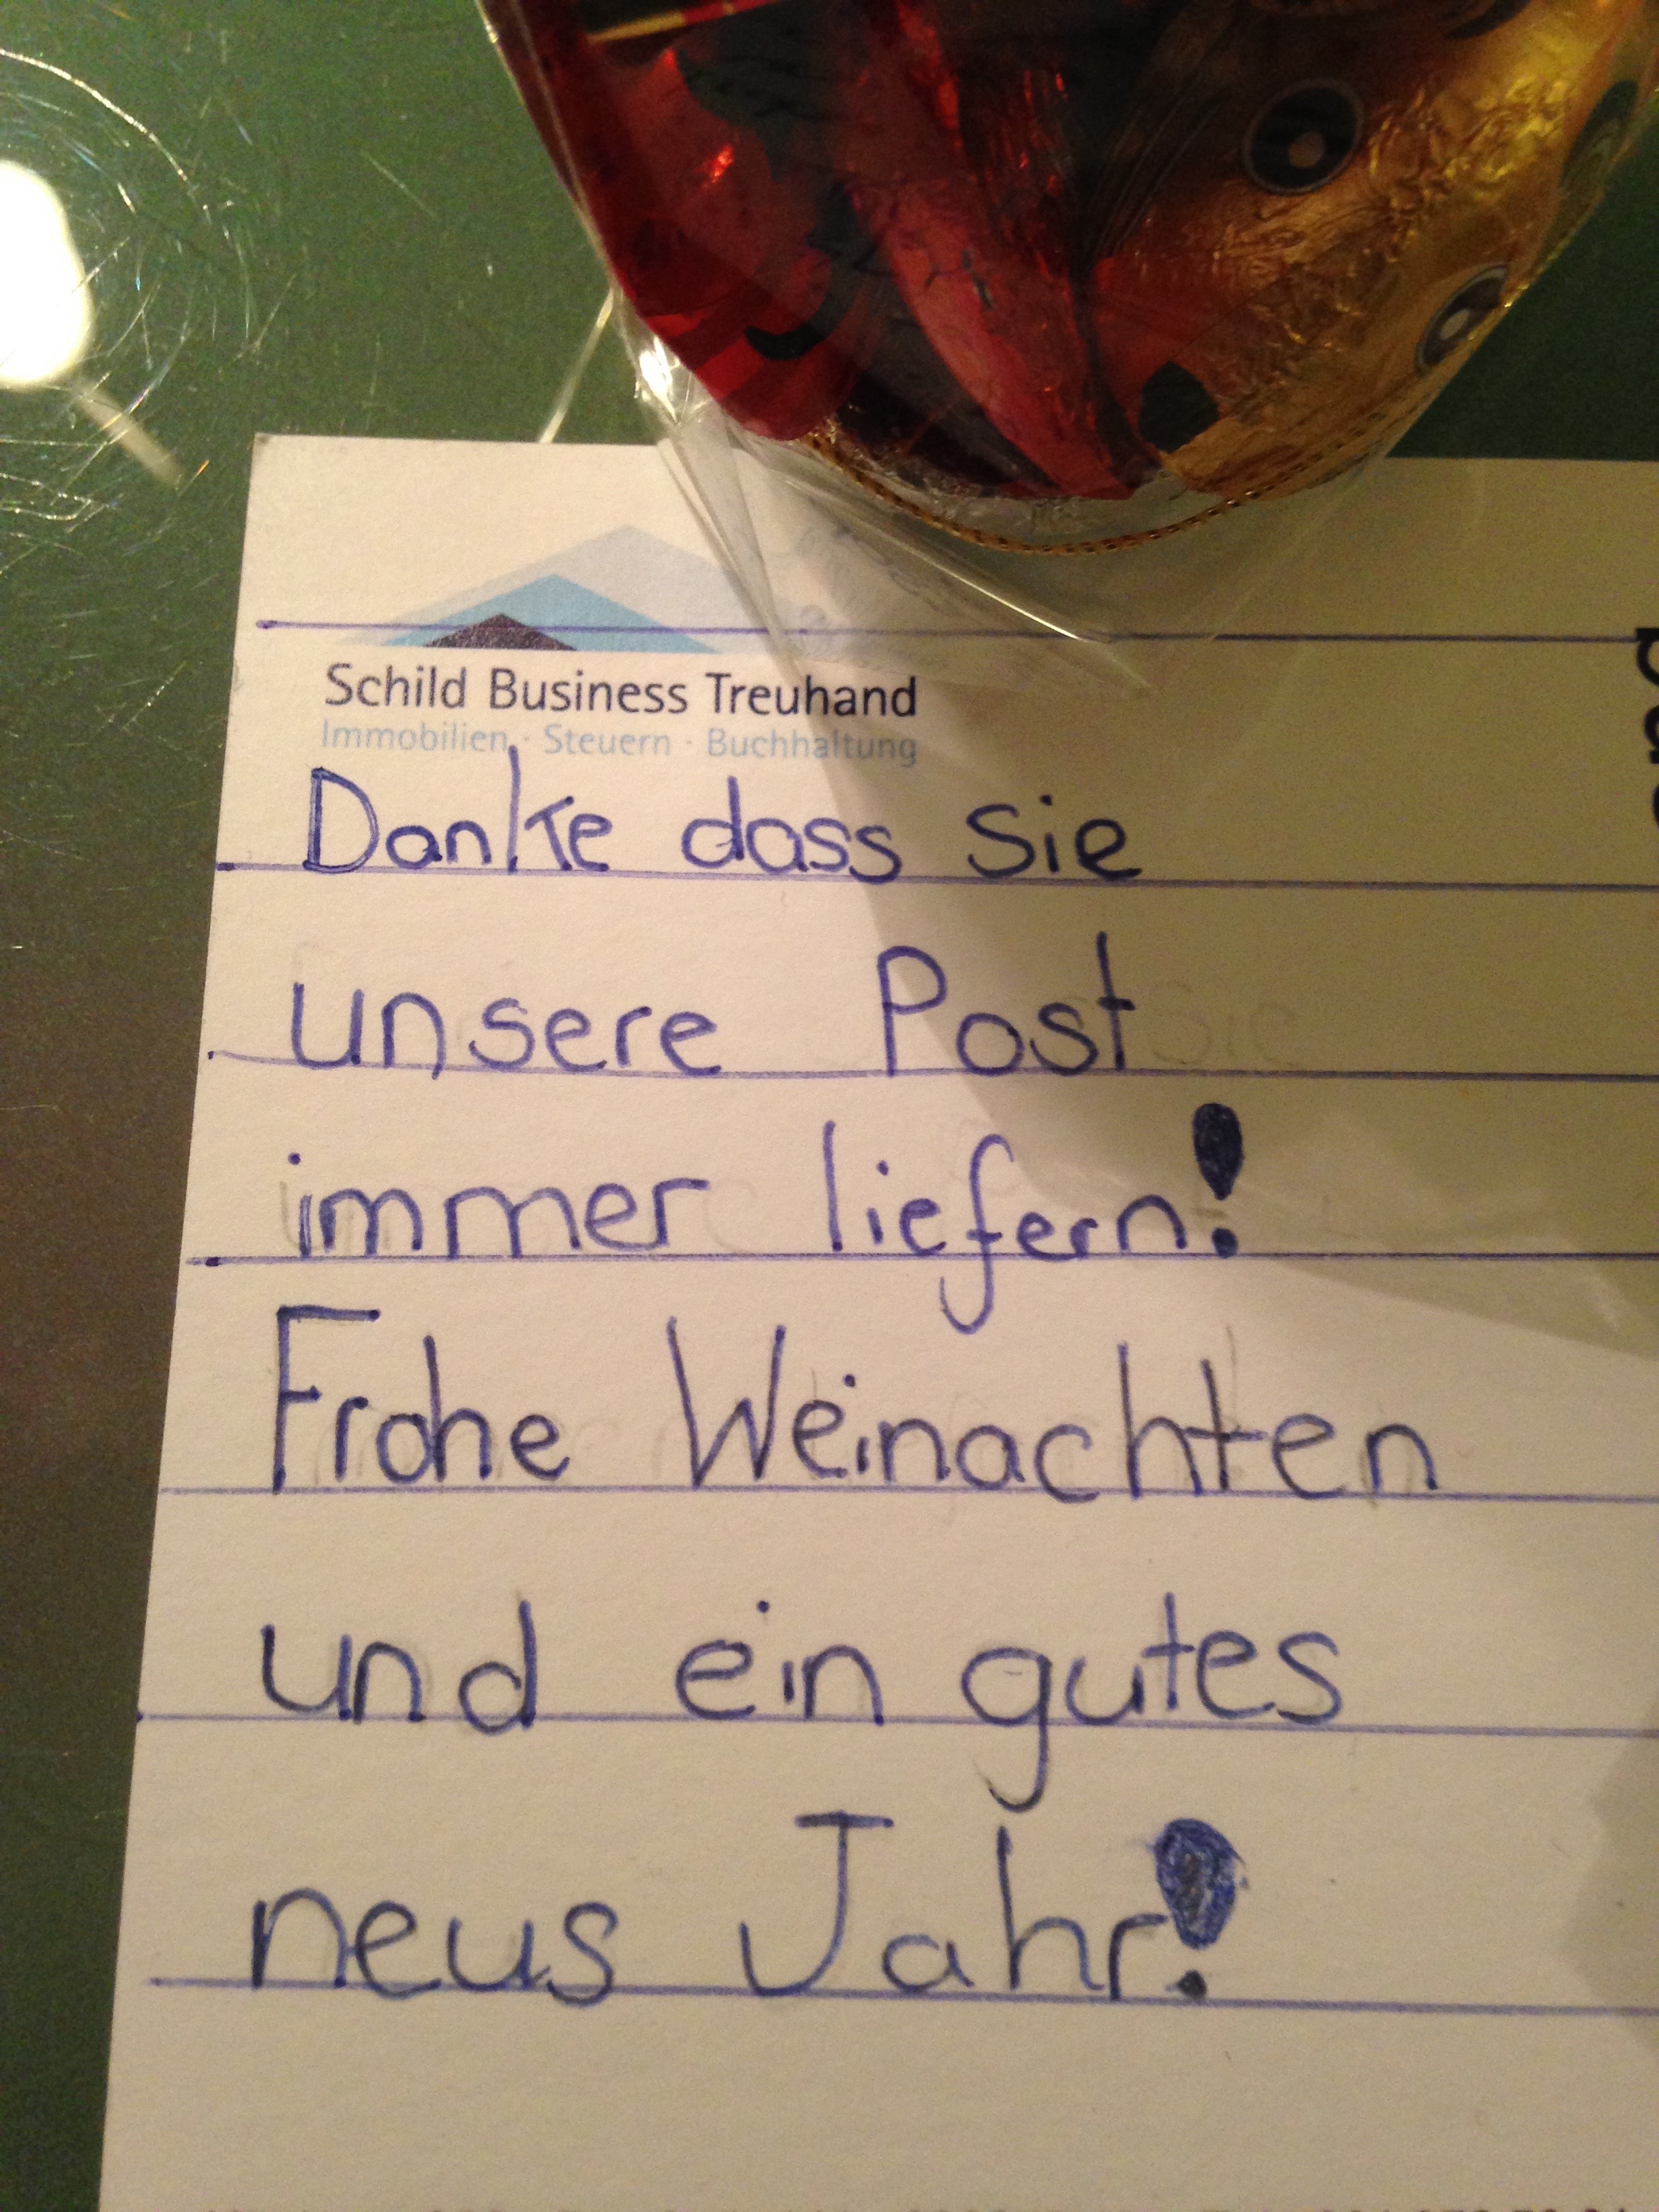 Schild Business Treuhand
Immobilien · Steuern · Buchhaltung
Danke dass sie
unsere Post
immer liefern!
Frohe Weinachten
und ein gutes
neus Jahr!